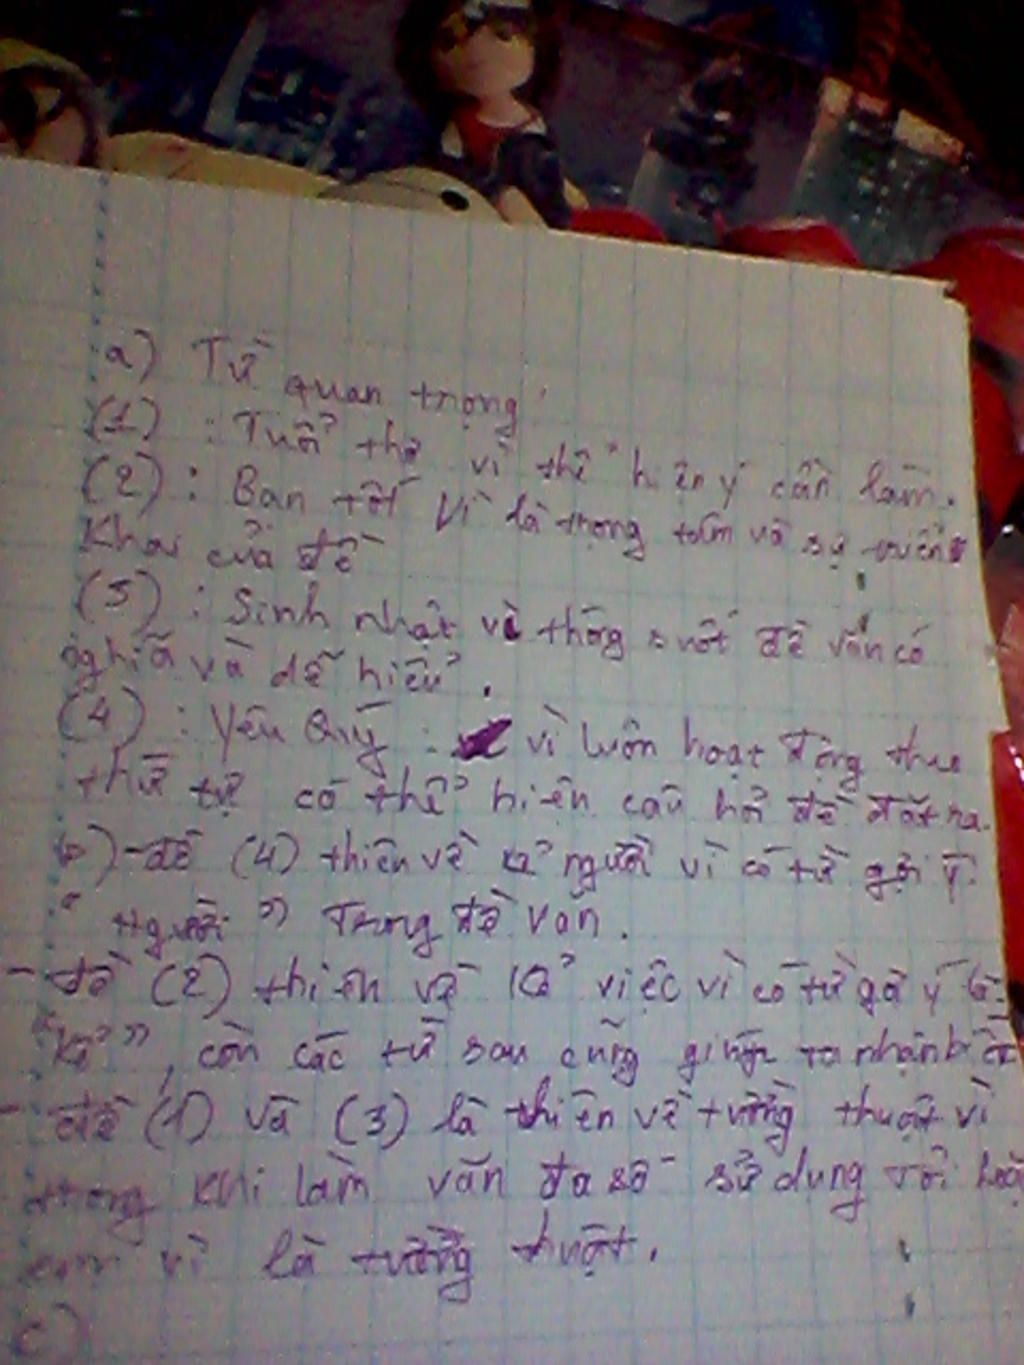 a) Từ quan trọng:
(1) : Tuổi thơ vì thể hiện ý cần làm.
(2) : Bạn tốt vì là trọng tâm và sự triển
khai của đề
(3) : Sinh nhật vì thông suốt đề văn có
nghĩa và dễ hiểu.
(4) : Yêu Quý : vì luôn hoạt động theo
thứ tự có thể hiện câu hỏi đề đặt ra.
b) - đề (4) thiên về kể người vì có từ gợi ý
" Người " Trong đề văn.
- đề (2) thiên về kể việc vì có từ gợi ý là
"kể", còn các từ sau cũng giúp ta nhận biết
- đề (1) và (3) là thiên về tường thuật vì
trong khi làm văn đa số sử dụng tôi hoặc
em vì là tường thuật.
c)